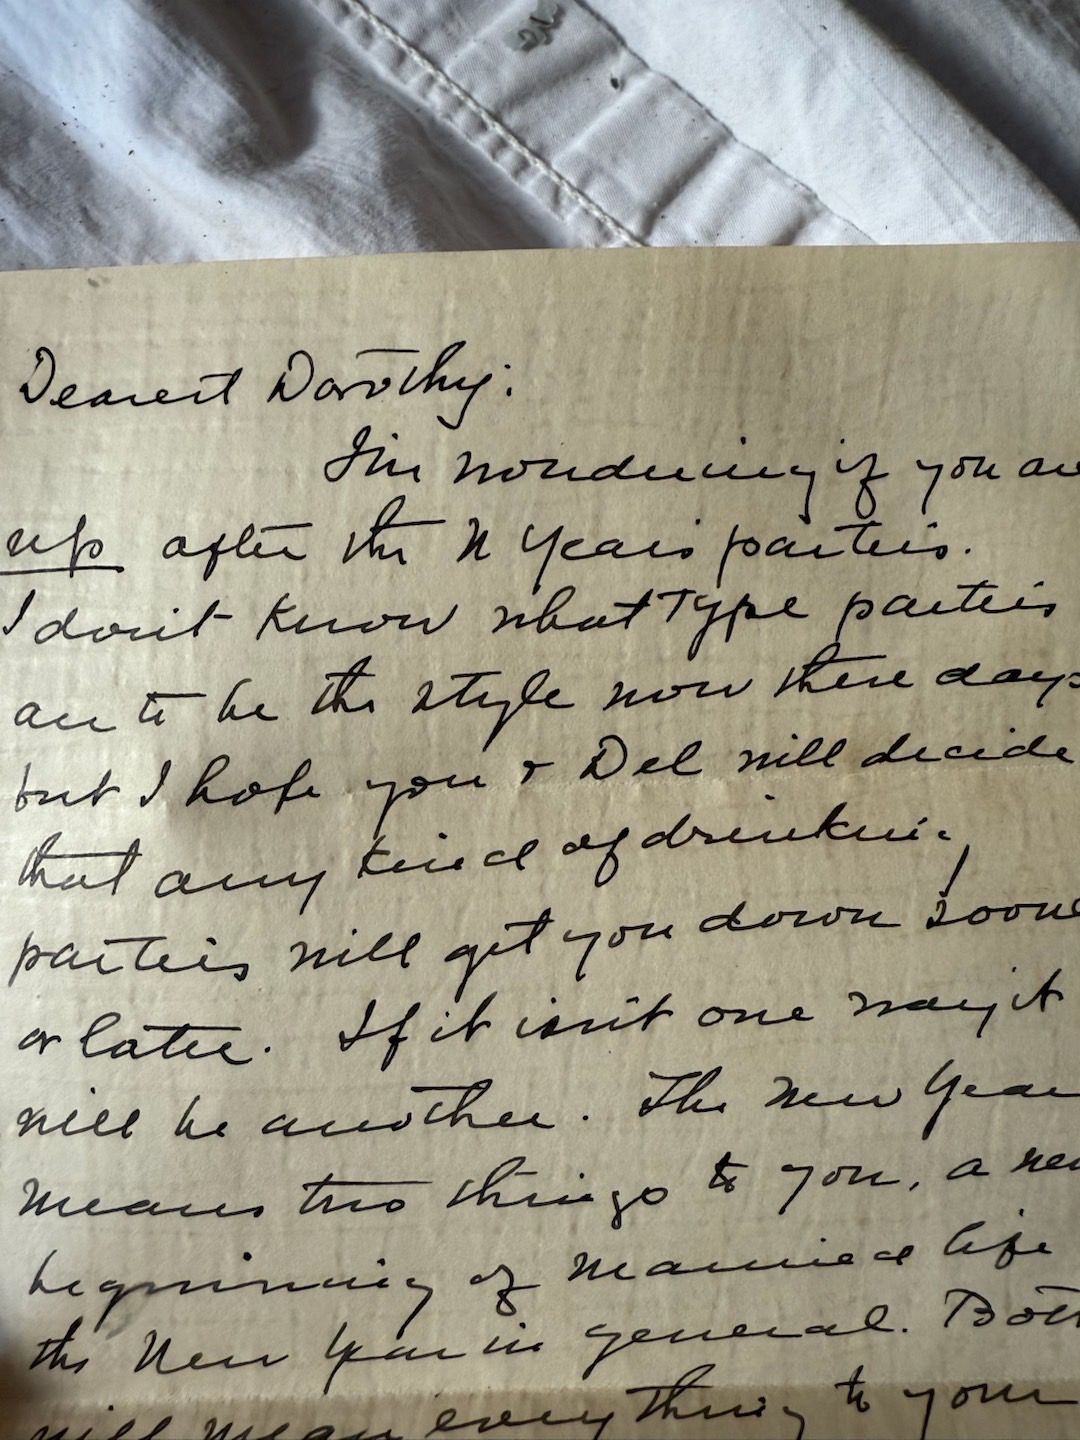 Dearest Dorothy:
I'm wondering if you are
up after the N Years parties.
I don't know what type parties
are to be the style now these days
but I hope you & Del will decide
that any kind of drinking
parties will get you down sooner
or later. If it isn't one way it
will be another. The New Year
means two things to you, a new
beginning of married life
the New Year in general. Both
will mean everything to your